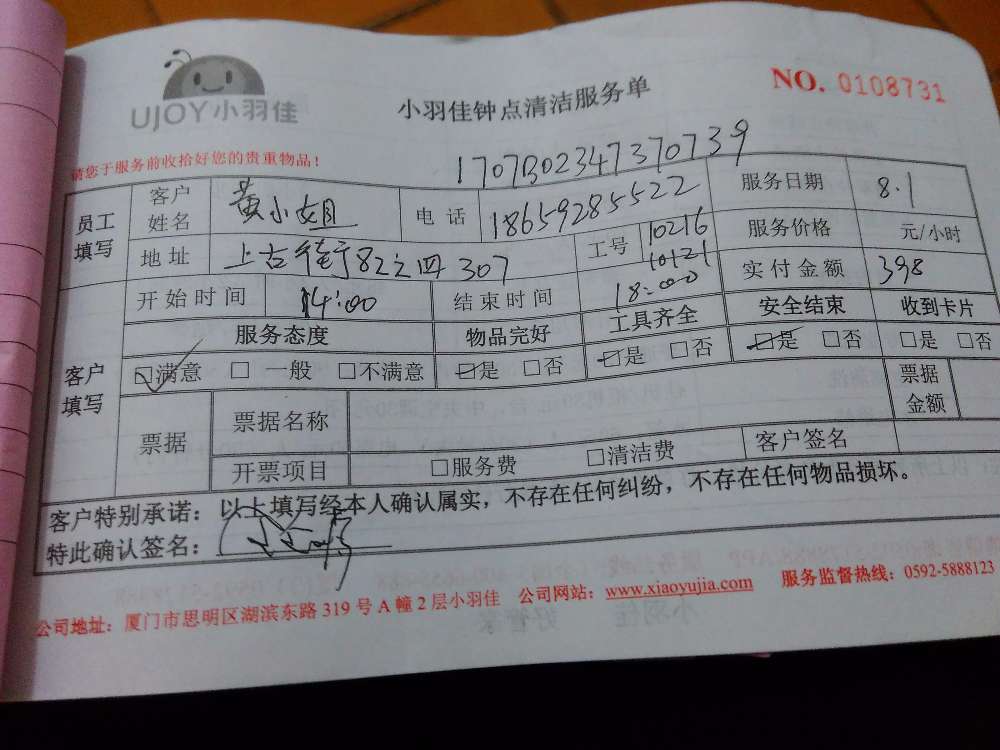 UJOY小羽佳
小羽佳钟点清洁服务单
NO. 0108731
请您于服务前收拾好您的贵重物品！
1707302347370739
员工填写 客户姓名 黄小姐 电话 18659285522 服务日期 8.1
地址 上古街82之四 307 工号 10216 10121 服务价格 元/小时
开始时间 14:00 结束时间 18:00 实付金额 398
客户填写 服务态度 物品完好 工具齐全 安全结束 收到卡片
☑满意 □ 一般 □不满意 ☑是 □否 ☑是 □否 ☑是 □否 □是 □否
票据 票据名称 票据金额
开票项目 □服务费 □清洁费 客户签名
客户特别承诺：以上填写经本人确认属实，不存在任何纠纷，不存在任何物品损坏。
特此确认签名：
公司地址：厦门市思明区湖滨东路 319 号 A 幢 2 层小羽佳 公司网站：www.xiaoyujia.com 服务监督热线：0592-5888123